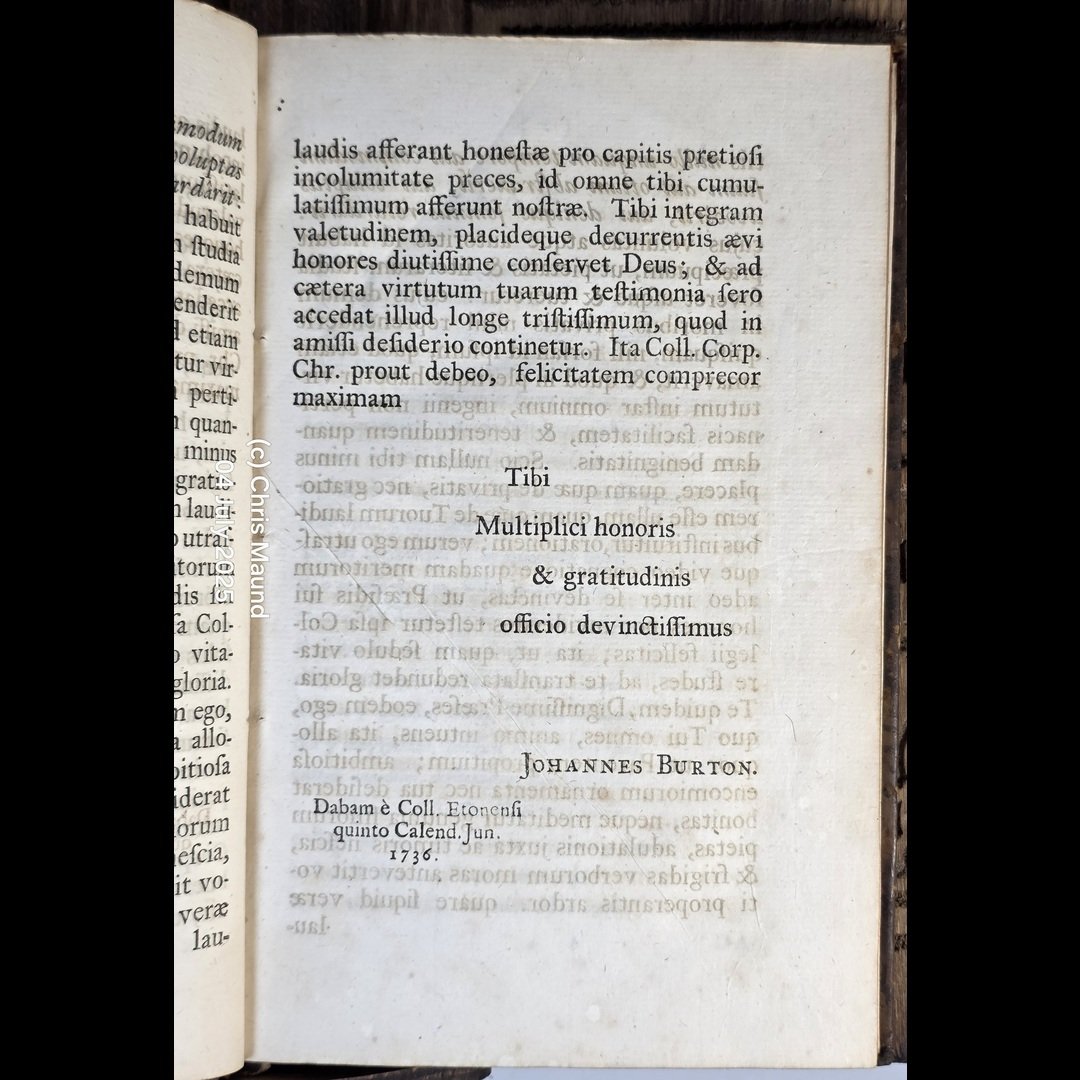 modum
voluptas
ardârit:
habuit
ſtudia
demum
enderit
etiam
tur vir-
perti-
quan-
minus
gratio-
laudi-
utraſ-
torum
dis ſui
Col-
vita-
gloria.
ego,
allo-
bitioſa
iderat
iorum
neſcia,
it vo-
veræ
lau-
laudis afferant honeſtæ pro capitis pretioſi
incolumitate preces, id omne tibi cumu-
latiſſimum afferunt noſtræ. Tibi integram
valetudinem, placideque decurrentis ævi
honores diutiſſime conſervet Deus; & ad
cætera virtutum tuarum teſtimonia ſero
accedat illud longe triſtiſſimum, quod in
amiſſi deſiderio continetur. Ita Coll. Corp.
Chr. prout debeo, felicitatem comprecor
maximam
Tibi
Multiplici honoris
& gratitudinis
officio devinctiſſimus
JOHANNES BURTON.
Dabam è Coll. Etonenſi
quinto Calend. Jun.
1736.
(c) Chris Maund
04 July 2025